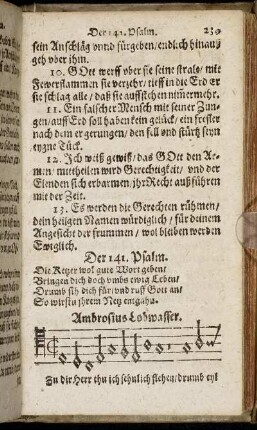 Der 141. Psalm. 230
sein Anschläg vnnd fürgeben/ endlich hinauß
geh vber jhm.
10. GOtt werff vber sie seine stral/ mit
Fewerflammen sie verzehr/ tieff in die Erd er
sie schlag alle/ daß sie auffstehen nimmermehr.
11. Ein falscher Mensch mit seiner Zun-
gen/ auff Erd soll haben kein gelück/ ein frefler
nach dem er gerungen/ den fell vnd stürtz sein
eygne Tück.
12. Ich weiß gewiß/ das GOtt den Ar-
men/ mittheilen wird Gerechtigkeit/ vnd der
Elenden sich erbarmen/ jhr Recht außführen
mit der Zeit.
13. Es werden die Gerechten rühmen/
dein heilgen Namen würdiglich/ für deinem
Angesicht der frummen/ wol bleiben werden
Ewiglich.
Der 141. Psalm.
Die Ketzer wol gute Wort geben/
Bringen dich doch vmbs ewig Leben/
Drumb sih dich für/ vnd ruff Gott an/
So wirstu jhrem Netz entgahn.
Ambrosius Lobwasser.
Zu dir Herr thu ich sehnlich flehen/ drumb eyl